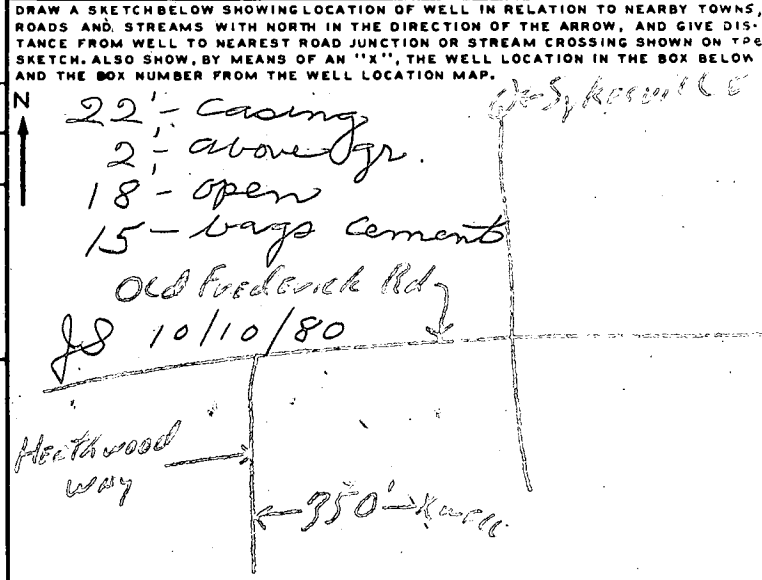 DRAW A SKETCH BELOW SHOWING LOCATION OF WELL IN RELATION TO NEARBY TOWNS,
ROADS AND STREAMS WITH NORTH IN THE DIRECTION OF THE ARROW, AND GIVE DIS-
TANCE FROM WELL TO NEAREST ROAD JUNCTION OR STREAM CROSSING SHOWN ON THE
SKETCH. ALSO SHOW, BY MEANS OF AN "X", THE WELL LOCATION IN THE BOX BELOW
AND THE BOX NUMBER FROM THE WELL LOCATION MAP.
N
Sykesville
22'- Casing
2'- above gr.
18'- open
15- bags cement
Old Frederick Rd
JS 10/10/80
Heathwood
Way
350' X well